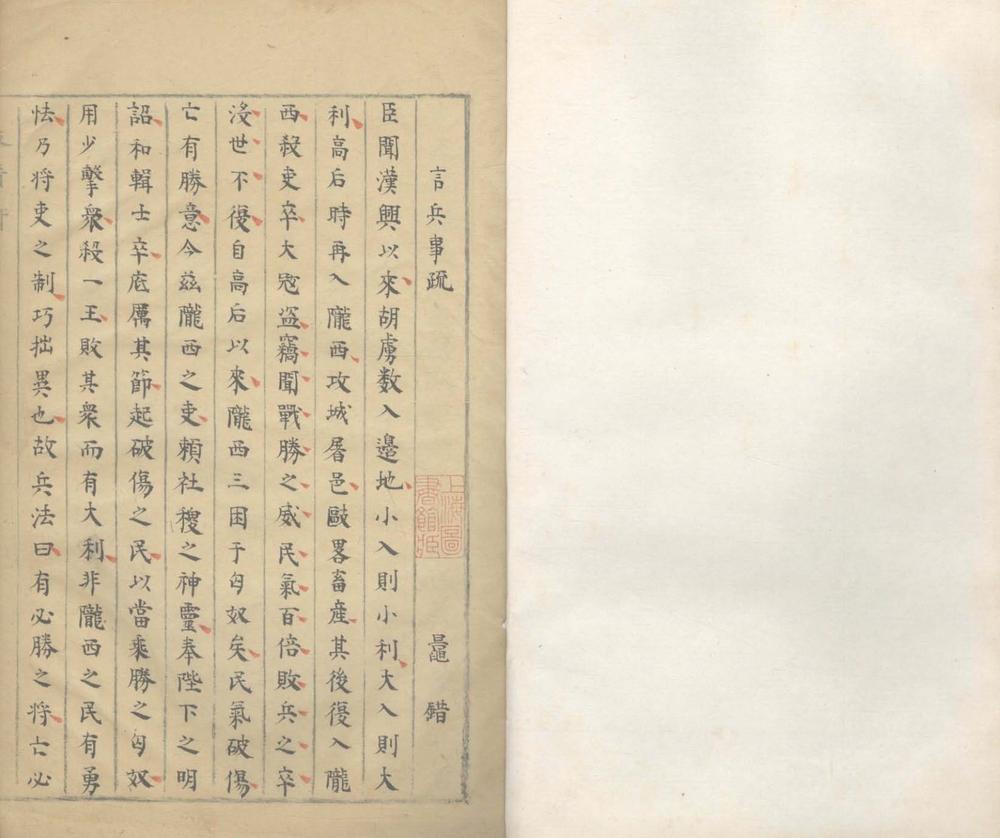 言兵事疏 鼂錯
上海圖
書館藏
臣聞漢興以來胡虜数入邉地小入則小利大入則大
利高后時再入隴西攻城屠邑敺畧畜産其後復入隴
西殺吏卒大寇盗竊聞戰勝之威民氣百倍敗兵之卒
没世不復自高后以來隴西三困于匈奴矣民氣破傷
亡有勝意今兹隴西之吏頼社稷之神靈奉陛下之明
詔和輯士卒底厲其節起破傷之民以當乘勝之匈奴
用少擊衆殺一王敗其衆而有大利非隴西之民有勇
怯乃将吏之制巧拙異也故兵法曰有必勝之将亡必